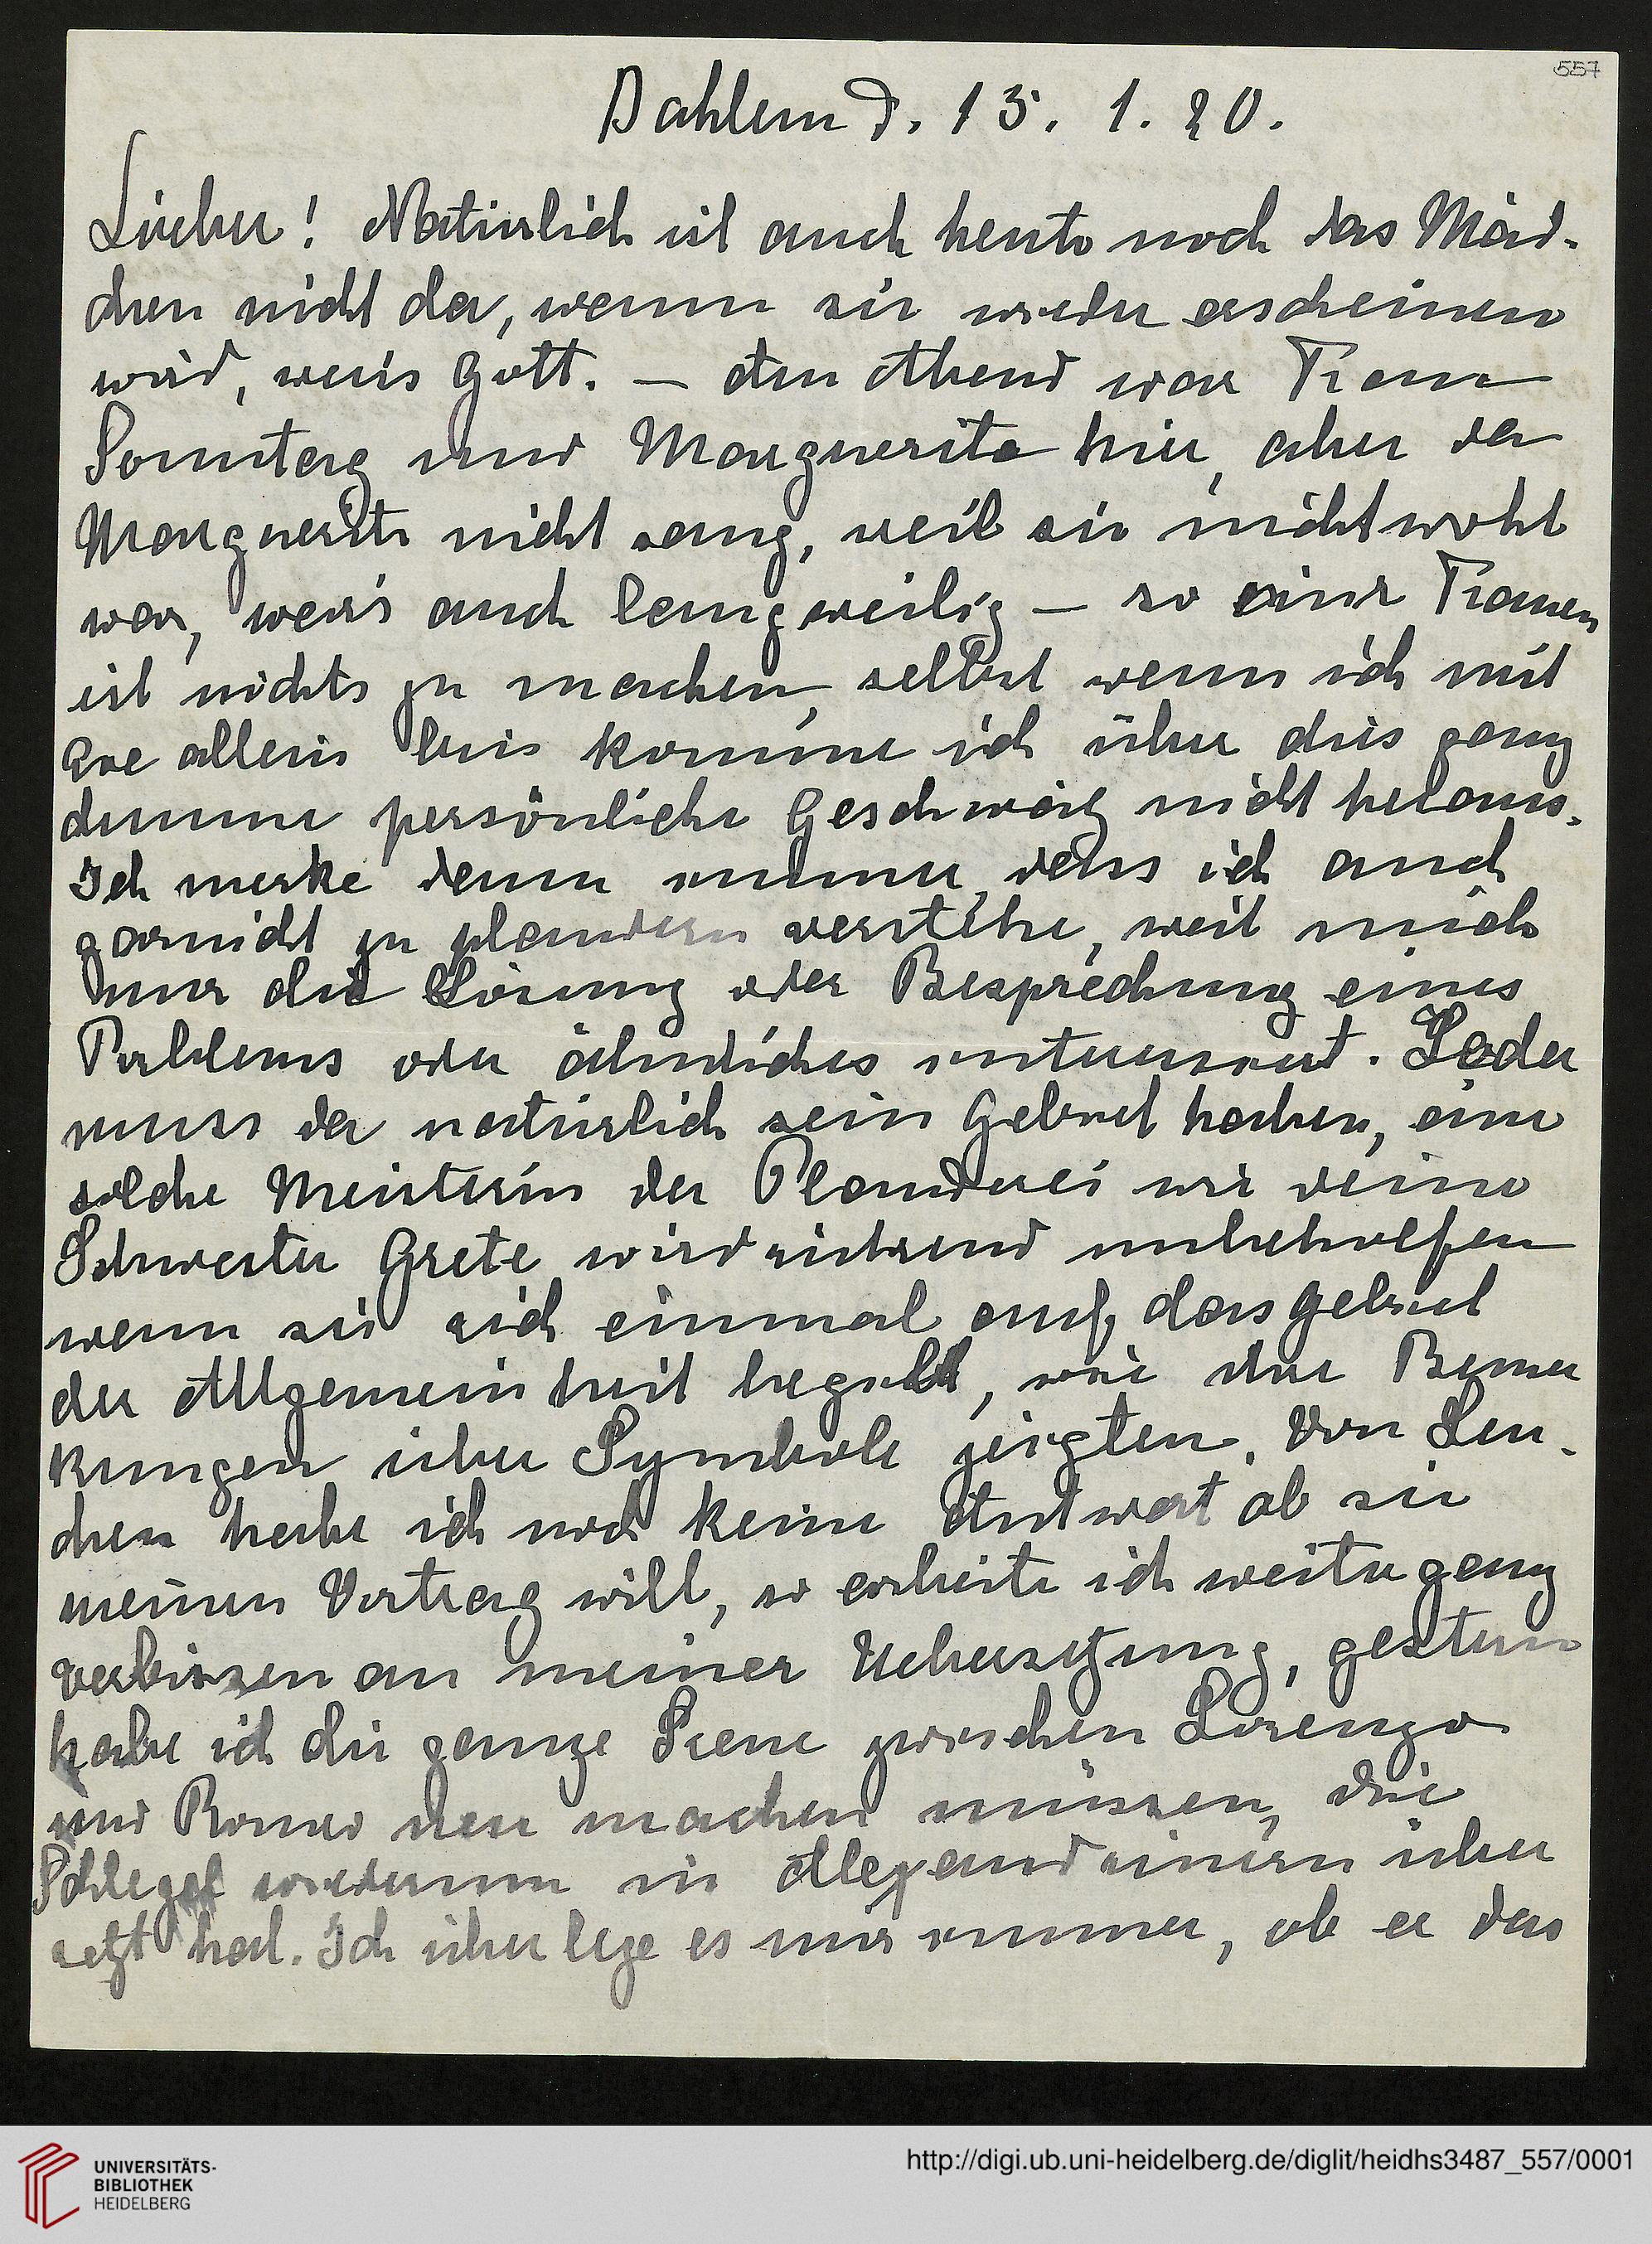 557
Dahlem d. 15. 1. 20.
Lieber! Natürlich ist auch heute noch das Mäd-
chen nicht da, wann sie wieder erscheinen
wird, weis Gott. — Am Abend war Frau
Sonntag und Marguerite hier, aber da
Marguerite nicht sang, weil sie nicht wohl
war, war's auch langweilig — so Frauen
ist nichts zu machen, selbst wenn ich mit
Eve allein bin komme ich über dies ganz
dumme persönliche Geschwätz nicht heraus.
Ich merke dann immer, dass ich auch
garnicht zu plaudern verstehe, weil mich
nur die Lösung oder Besprechung eines
Problems oder ähnliches interessiert. Jeder
muss da natürlich sein Gebiet haben, eine
solche Meisterin der Plauderei wie deine
Schwester Grete wird rührend unbeholfen
wenn sie sich einmal auf das Gebiet
der Allgemeinheit begiebt, wie ihre Bemer
kungen über Symbole zeigten. Von Len-
chen habe ich noch keine Antwort ob sie
meinen Vortrag will, so arbeite ich weiter ganz
verbissen an meiner Uebersetzung, gestern
habe ich die ganze Scene zwischen Lorenzo
und Romeo neu machen müssen, die
Schlegel wiederum in Alexandrinern über
setzt hat. Ich überlege es mir immer, ob er das
UNIVERSITÄTS-
BIBLIOTHEK
HEIDELBERG
http://digi.ub.uni-heidelberg.de/diglit/heidhs3487_557/0001